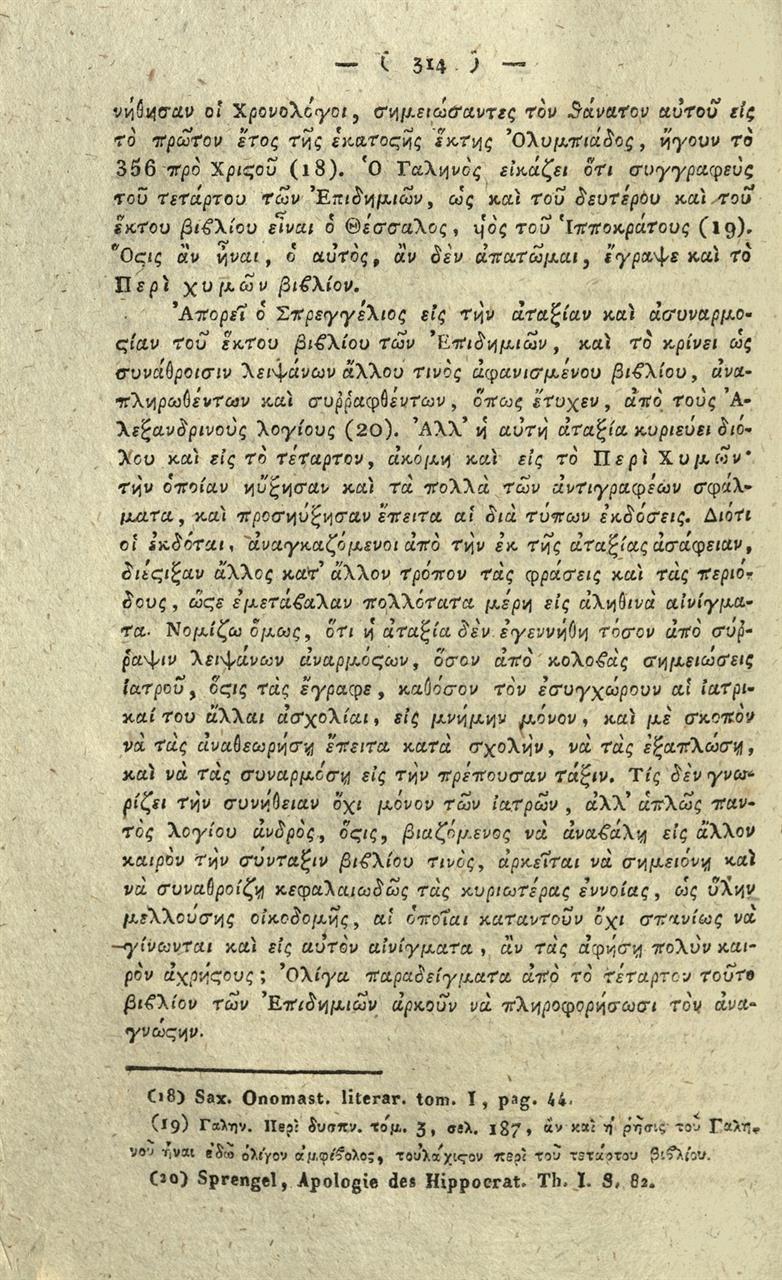 — ( 314 ) —
νήθησαν οἱ Χρονολόγοι, σημειώσαντες τὸν θάνατον αὐτοῦ εἰς
τὸ πρῶτον ἔτος τῆς ἑκατοϛῆς ἕκτης Ὀλυμπιάδος, ἤγουν τὸ
356 πρὸ Χριϛοῦ (18). Ὁ Γαληνὸς εἰκάζει ὅτι συγγραφεὺς
τοῦ τετάρτου τῶν Ἐπιδημιῶν, ὡς καὶ τοῦ δευτέρου καὶ τοῦ
ἕκτου βιβλίου εἶναι ὁ Θέσσαλος, ὑὸς τοῦ Ἱπποκράτους (19).
Ὅϛις ἂν ἦναι, ὁ αὐτὸς, ἂν δὲν ἀπατῶμαι, ἔγραψε καὶ τὸ
Περὶ χυμῶν βιβλίον.
Ἀπορεῖ ὁ Σπρεγγέλιος εἰς τὴν ἀταξίαν καὶ ἀσυναρμο-
ϛίαν τοῦ ἕκτου βιβλίου τῶν Ἐπιδημιῶν, καὶ τὸ κρίνει ὡς
συνάθροισιν λειψάνων ἄλλου τινὸς ἀφανισμένου βιβλίου, ἀνα-
πληρωθέντων καὶ συῤῥαφθέντων, ὅπως ἔτυχεν, ἀπὸ τοὺς Ἀ-
λεξανδρινοὺς λογίους (20). Ἀλλ' ἡ αὐτὴ ἀταξία κυριεύει διό-
λου καὶ εἰς τὸ τέταρτον, ἀκόμη καὶ εἰς τὸ Περὶ Χυμῶν·
τὴν ὁποίαν ηὔξησαν καὶ τὰ πολλὰ τῶν ἀντιγραφέων σφάλ-
ματα, καὶ προσηύξησαν ἔπειτα αἱ διὰ τύπων ἐκδόσεις. Διότι
οἱ ἐκδόται, ἀναγκαζόμενοι ἀπὸ τὴν ἐκ τῆς ἀταξίας ἀσάφειαν,
διέϛιξαν ἄλλος κατ' ἄλλον τρόπον τὰς φράσεις καὶ τὰς περιό-
δους, ὥϛε ἐμετάβαλαν πολλότατα μέρη εἰς ἀληθινὰ αἰνίγμα-
τα. Νομίζω ὅμως, ὅτι ἡ ἀταξία δὲν ἐγεννήθη τόσον ἀπὸ σύῤ-
ῥαψιν λειψάνων ἀναρμόϛων, ὅσον ἀπὸ κολοβὰς σημειώσεις
ἰατροῦ, ὅϛις τὰς ἔγραφε, καθόσον τὸν ἐσυγχώρουν αἱ ἰατρι-
καί του ἄλλαι ἀσχολίαι, εἰς μνήμην μόνον, καὶ μὲ σκοπὸν
νὰ τὰς ἀναθεωρήσῃ ἔπειτα κατὰ σχολὴν, νὰ τὰς ἐξαπλώσῃ,
καὶ νὰ τὰς συναρμόσῃ εἰς τὴν πρέπουσαν τάξιν. Τίς δὲν γνω-
ρίζει τὴν συνήθειαν ὄχι μόνον τῶν ἰατρῶν, ἀλλ' ἁπλῶς παν-
τὸς λογίου ἀνδρὸς, ὅϛις, βιαζόμενος νὰ ἀναβάλῃ εἰς ἄλλον
καιρὸν τὴν σύνταξιν βιβλίου τινὸς, ἀρκεῖται νὰ σημειόνῃ καὶ
νὰ συναθροίζῃ κεφαλαιωδῶς τὰς κυριωτέρας ἐννοίας, ὡς ὕλην
μελλούσης οἰκοδομῆς, αἱ ὁποῖαι καταντοῦν ὄχι σπανίως νὰ
γίνωνται καὶ εἰς αὐτὸν αἰνίγματα, ἂν τὰς ἀφήσῃ πολὺν και-
ρὸν ἀχρήϛους; Ὀλίγα παραδείγματα ἀπὸ τὸ τέταρτον τοῦτο
βιβλίον τῶν Ἐπιδημιῶν ἀρκοῦν νὰ πληροφορήσωσι τὸν ἀνα-
γνώϛην.
(18) Sax. Onomast. literar. tom. I, pag. 44.
(19) Γαλην. Περὶ δυσπν. τόμ. 3, σελ. 187, ἂν καὶ ἡ ῥῆσις τοῦ Γαλη-
νοῦ ἦναι ἐδῶ ὀλίγον ἀμφίβολος, τοὐλάχιϛον περὶ τοῦ τετάρτου βιβλίου.
(20) Sprengel, Apologie des Hippocrat. Th. I. S. 82.